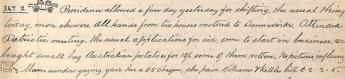 SAT 2 Providence allowed a fine day yesterday for shifting, the usual thing
today, more showers, all hands from two houses motored to Dannevirke. Attended
Patriotic meeting. The usual applications for aid, some to start in business, we
bought small bag Australian potatoes for 15/ some of them rotten. No pictures influenza
Mam window gazing, gave her a 25 cheque, she paid Williams & Kettles bill £ 2-2-6.